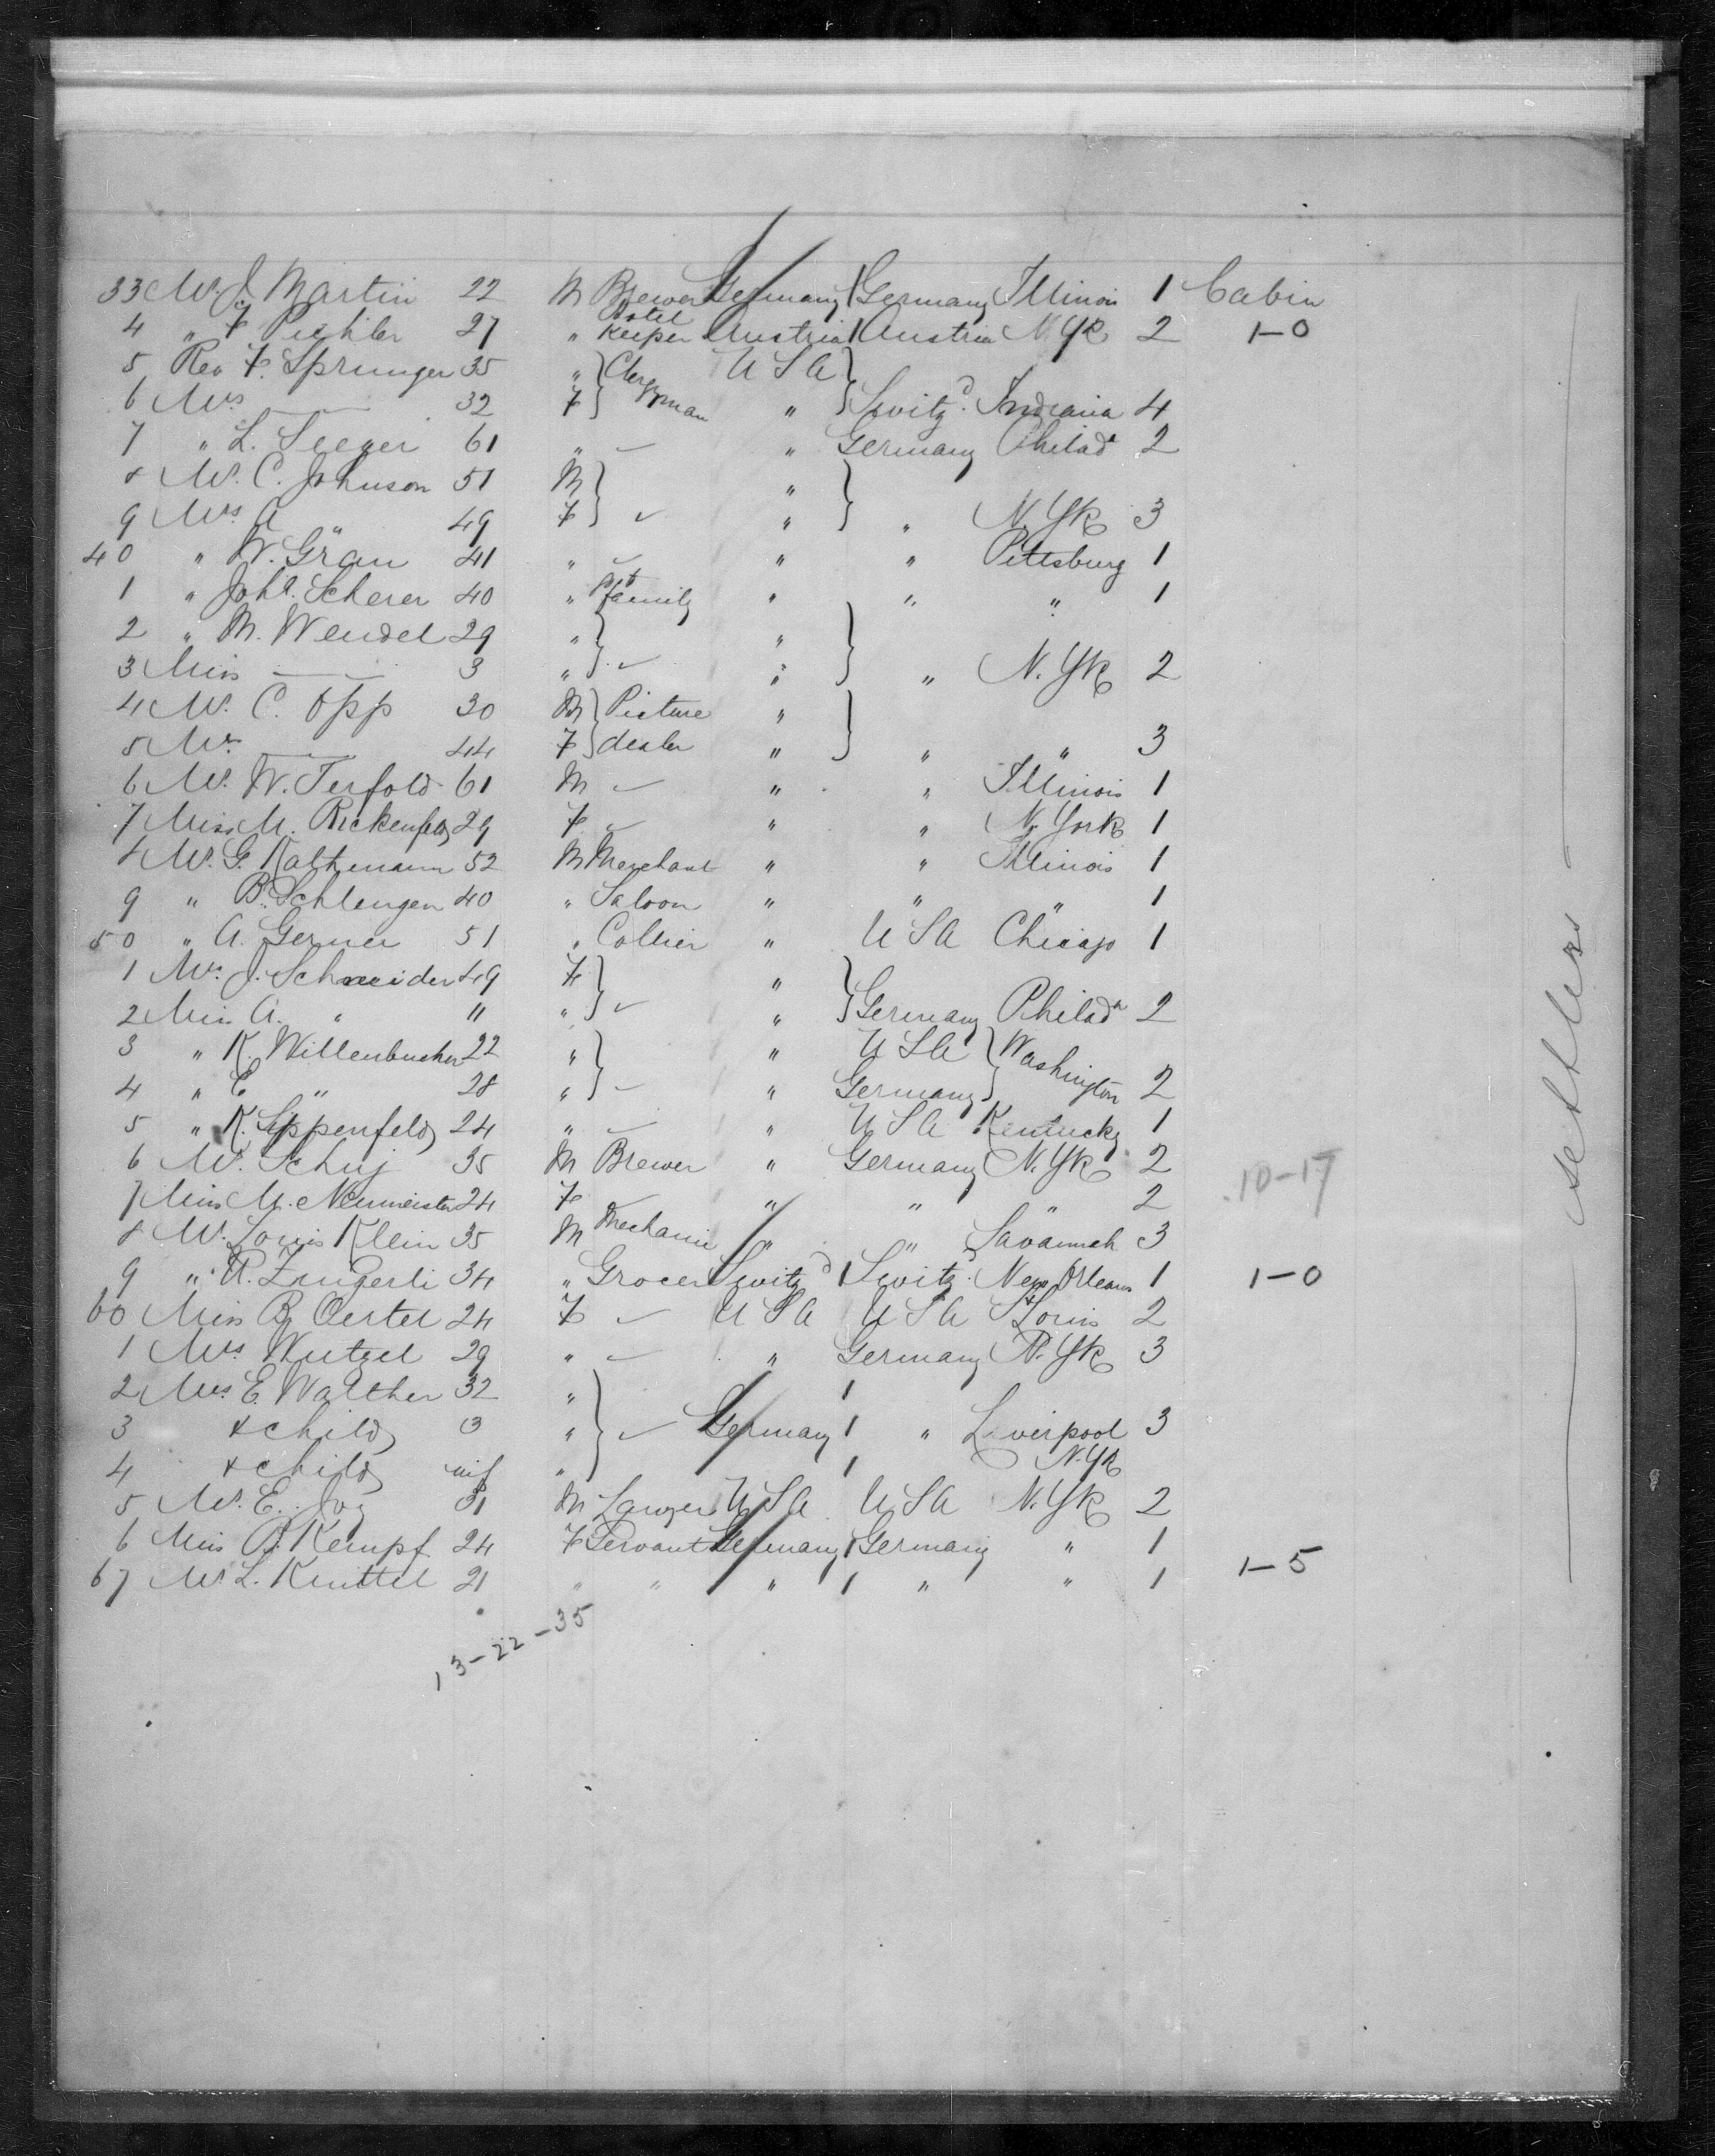 33 Mr. J. Martin 22 M Brewer Germany 1 Germany Illinois 1 Cabin
4 " F. Pichler 27 " Hotel Keeper Austria 1 Austria N. Yk 2 1-0
5 Rev F. Sprunger 35 " } Clergyman U S A }
6 Mrs —— 32 F } " } Switzd. Indiana 4
7 " L. Seeger 61 " — " Germany Philada 2
8 Mr. C. Johnson 51 M } " }
9 Mrs A " 49 F } ✓ " } " N. Yk 3
40 " W. Gran 41 " ✓ " " Pittsburg 1
1 " Joha. Scherer 40 " family " " " 1
2 " M. Wendel 29 " } " }
3 Miss —— 3 " } ✓ " } " N. Yk 2
4 Mr. C. Opp 30 M } Picture " }
5 Mrs —— 44 F } dealer " } " " 3
6 Mr. W. Terfold 61 M ✓ " " Illinois 1
7 Miss M. Rickenfeld 29 F ✓ " " N. York 1
8 Mr. G. Kathmann 52 M Merchant " " Illinois 1
9 " B. Schlengen 40 " Saloon " " " 1
50 " A. Gerner 51 " Collier " U S A Chicago 1
1 Mrs. J. Schneider 49 F } " }
2 Miss A. " 11 " } ✓ " } Germany Philada 2
3 " K. Willenbucher 22 " } " U S A } Washington
4 " E " 28 " } — " Germany } 2
5 " K. Lippenfeld 24 " — " U S A Kentucky 1
6 Mr. Schuj 35 M Brewer " Germany N. Yk 2 10-17
7 Miss M. Neumeister 24 F — " " " 2
8 Mr. Louis Klein 35 M Mechanic " " Savannah 3
9 " R. Zungerli 34 " Grocer Switzd 1 Switzd. New Orleans 1 1-0
60 Miss B. Oertel 24 F ✓ U S A U S A St Louis 2
1 Mrs Wutzel 29 " ✓ " Germany N. Yk 3
2 Mrs. E. Walther 32 " } 1
3 & child 3 " } ✓ Germany 1 " Liverpool 3
4 & child inf " } 1 N. Yk
5 Mr. E. Joy 31 M Lawyer U S A U S A N. Yk 2
6 Miss B. Kempf 24 F Servant Germany 1 Germany " 1
67 Mr L. Knittel 21 " " " 1 " " 1 1-5
13-22-35
settlers